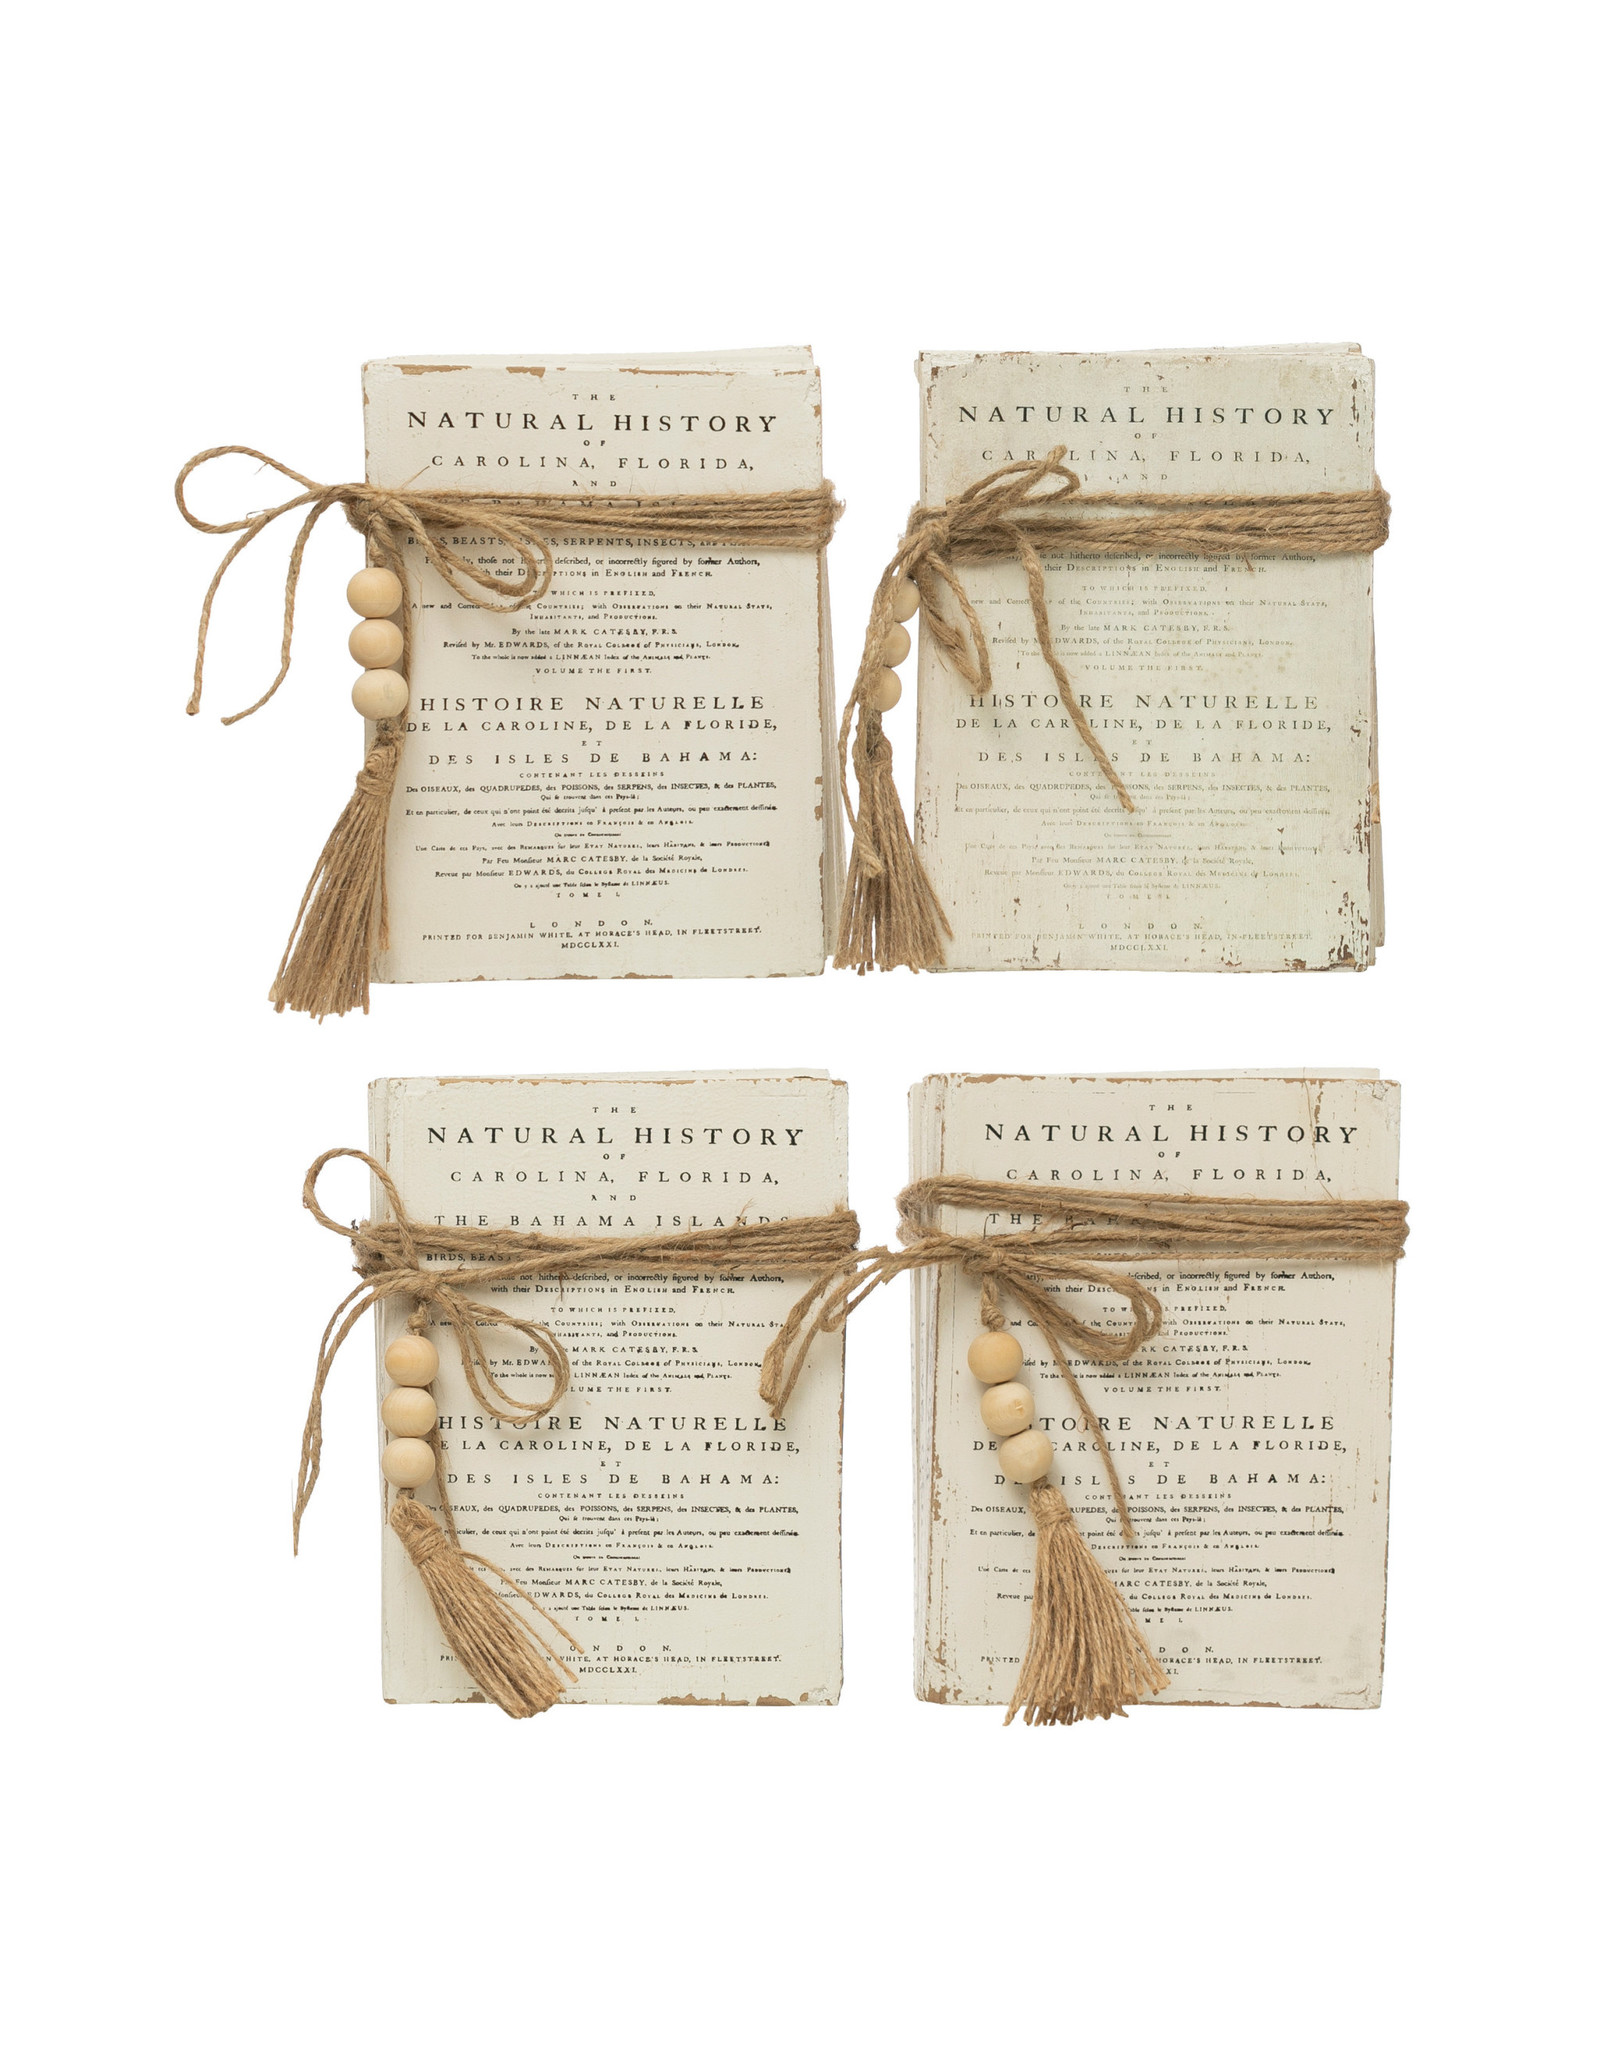 THE
NATURAL HISTORY
OF
CAROLINA, FLORIDA,
AND
BEASTS, SERPENTS, INSECTS, AND
those not described, or incorrectly figured by former Authors,
with their DESCRIPTIONS in ENGLISH and FRENCH.
WHICH IS PREFIXED,
A new and Correct of the COUNTRIES; with OBSERVATIONS on their NATURAL STATE,
INHABITANTS, and PRODUCTIONS.
By the late MARK CATESBY, F.R.S.
Revised by Mr. EDWARDS, of the ROYAL COLLEGE of PHYSICIANS, LONDON.
To the whole is now added a LINNÆAN Index of the ANIMALS and PLANTS.
VOLUME THE FIRST.
HISTOIRE NATURELLE
DE LA CAROLINE, DE LA FLORIDE,
ET
DES ISLES DE BAHAMA:
CONTENANT LES DESSEINS
Des OISEAUX, des QUADRUPEDES, des POISSONS, des SERPENS, des INSECTES, & des PLANTES,
Qui se trouvent dans ces Pays-là;
Et en particulier, de ceux qui n'ont point été decrits jusqu' à present par les Auteurs, ou peu exactement dessinés.
Avec leurs DESCRIPTIONS en FRANÇOIS & en ANGLOIS.
Une Carte de ces Pays, avec des REMARQUES sur leur ETAT NATUREL, leurs HABITANS, & leurs PRODUCTIONS
Par Feu Monsieur MARC CATESBY, de la Société Royale,
Reveue par Monsieur EDWARDS, du COLLEGE ROYAL des MEDICINS de LONDRES.
On y a ajouté une Table selon le Systeme de LINNÆUS.
TOME I.
LONDON,
PRINTED FOR BENJAMIN WHITE, AT HORACE'S HEAD, IN FLEETSTREET.
MDCCLXXI.
THE
NATURAL HISTORY
OF
CAROLINA, FLORIDA,
AND
not hitherto described, or incorrectly figured by former Authors,
their DESCRIPTIONS in ENGLISH and FRENCH.
TO WHICH IS PREFIXED,
new and Correct of the COUNTRIES; with OBSERVATIONS on their NATURAL STATE,
INHABITANTS, and PRODUCTIONS.
By the late MARK CATESBY, F.R.S.
Revised by EDWARDS, of the ROYAL COLLEGE of PHYSICIANS, LONDON.
To the whole is now added a LINNÆAN Index of the ANIMALS and PLANTS.
VOLUME THE FIRST.
HISTOIRE NATURELLE
DE LA CAROLINE, DE LA FLORIDE,
ET
DES ISLES DE BAHAMA:
CONTENANT LES DESSEINS
Des OISEAUX, des QUADRUPEDES, des POISSONS, des SERPENS, des INSECTES, & des PLANTES,
Qui se trouvent dans ces Pays-là;
Et en particulier, de ceux qui n'ont point été decrits jusqu' à present par les Auteurs, ou peu exactement dessinés.
Avec leurs DESCRIPTIONS en FRANÇOIS & en ANGLOIS.
Une Carte de ces Pays avec des REMARQUES sur leur ETAT NATUREL, leurs HABITANS, & leurs PRODUCTIONS
Par Feu Monsieur MARC CATESBY, de la Société Royale,
Reveue par Monsieur EDWARDS, du COLLEGE ROYAL des MEDICINS de LONDRES.
On y a ajouté une Table selon le Systeme de LINNÆUS.
TOME I.
LONDON,
PRINTED FOR BENJAMIN WHITE, AT HORACE'S HEAD, IN FLEETSTREET.
MDCCLXXI.
THE
NATURAL HISTORY
OF
CAROLINA, FLORIDA,
AND
THE BAHAMA ISLANDS
BIRDS,
not hitherto described, or incorrectly figured by former Authors,
with their DESCRIPTIONS in ENGLISH and FRENCH.
TO WHICH IS PREFIXED,
A new and Correct of the COUNTRIES; with OBSERVATIONS on their NATURAL
INHABITANTS, and PRODUCTIONS.
MARK CATESBY, F.R.S.
by Mr. EDWARDS, of the ROYAL COLLEGE of PHYSICIANS, LONDON.
To the whole is now a LINNÆAN Index of the ANIMALS and PLANTS.
VOLUME THE FIRST.
HISTOIRE NATURELLE
DE LA CAROLINE, DE LA FLORIDE,
ET
DES ISLES DE BAHAMA:
CONTENANT LES DESSEINS
Des OISEAUX, des QUADRUPEDES, des POISSONS, des SERPENS, des INSECTES, & des PLANTES,
Qui se trouvent dans ces Pays-là;
particulier, de ceux qui n'ont point été decrits jusqu' à present par les Auteurs, ou peu exactement dessinés.
Avec leurs DESCRIPTIONS en FRANÇOIS & en ANGLOIS.
avec des REMARQUES sur leur ETAT NATUREL, leurs HABITANS, & leurs PRODUCTIONS
Feu Monsieur MARC CATESBY, de la Société Royale,
Monsieur EDWARDS, du COLLEGE ROYAL des MEDICINS de LONDRES.
y a ajouté une Table selon le Systeme de LINNÆUS.
TOME I.
LONDON,
WHITE, AT HORACE'S HEAD, IN FLEETSTREET.
MDCCLXXI.
THE
NATURAL HISTORY
OF
CAROLINA, FLORIDA,
THE
described, or incorrectly figured by former Authors,
with their DESCRIPTIONS in ENGLISH and FRENCH.
TO PREFIXED,
of the COUNTRIES; with OBSERVATIONS on their NATURAL STATE,
and PRODUCTIONS.
CATESBY, F.R.S.
EDWARDS, of the ROYAL COLLEGE of PHYSICIANS, LONDON.
To the whole is now added a LINNÆAN Index of the ANIMALS and PLANTS.
VOLUME THE FIRST.
NATURELLE
DE CAROLINE, DE LA FLORIDE,
ET
ISLES DE BAHAMA:
CONTENANT LES DESSEINS
Des OISEAUX, POISSONS, des SERPENS, des INSECTES, & des PLANTES,
Qui se trouvent dans ces Pays-là;
Et en particulier, de point été decrits jusqu' à present par les Auteurs, ou peu exactement dessinés.
DESCRIPTIONS en FRANÇOIS & en ANGLOIS.
Une Carte de ces sur leur ETAT NATUREL, leurs HABITANS, & leurs PRODUCTIONS
MARC CATESBY, de la Société Royale,
Reveue du COLLEGE ROYAL des MEDICINS de LONDRES.
Table selon le Systeme de LINNÆUS.
PRINTED HORACE'S HEAD, IN FLEETSTREET.